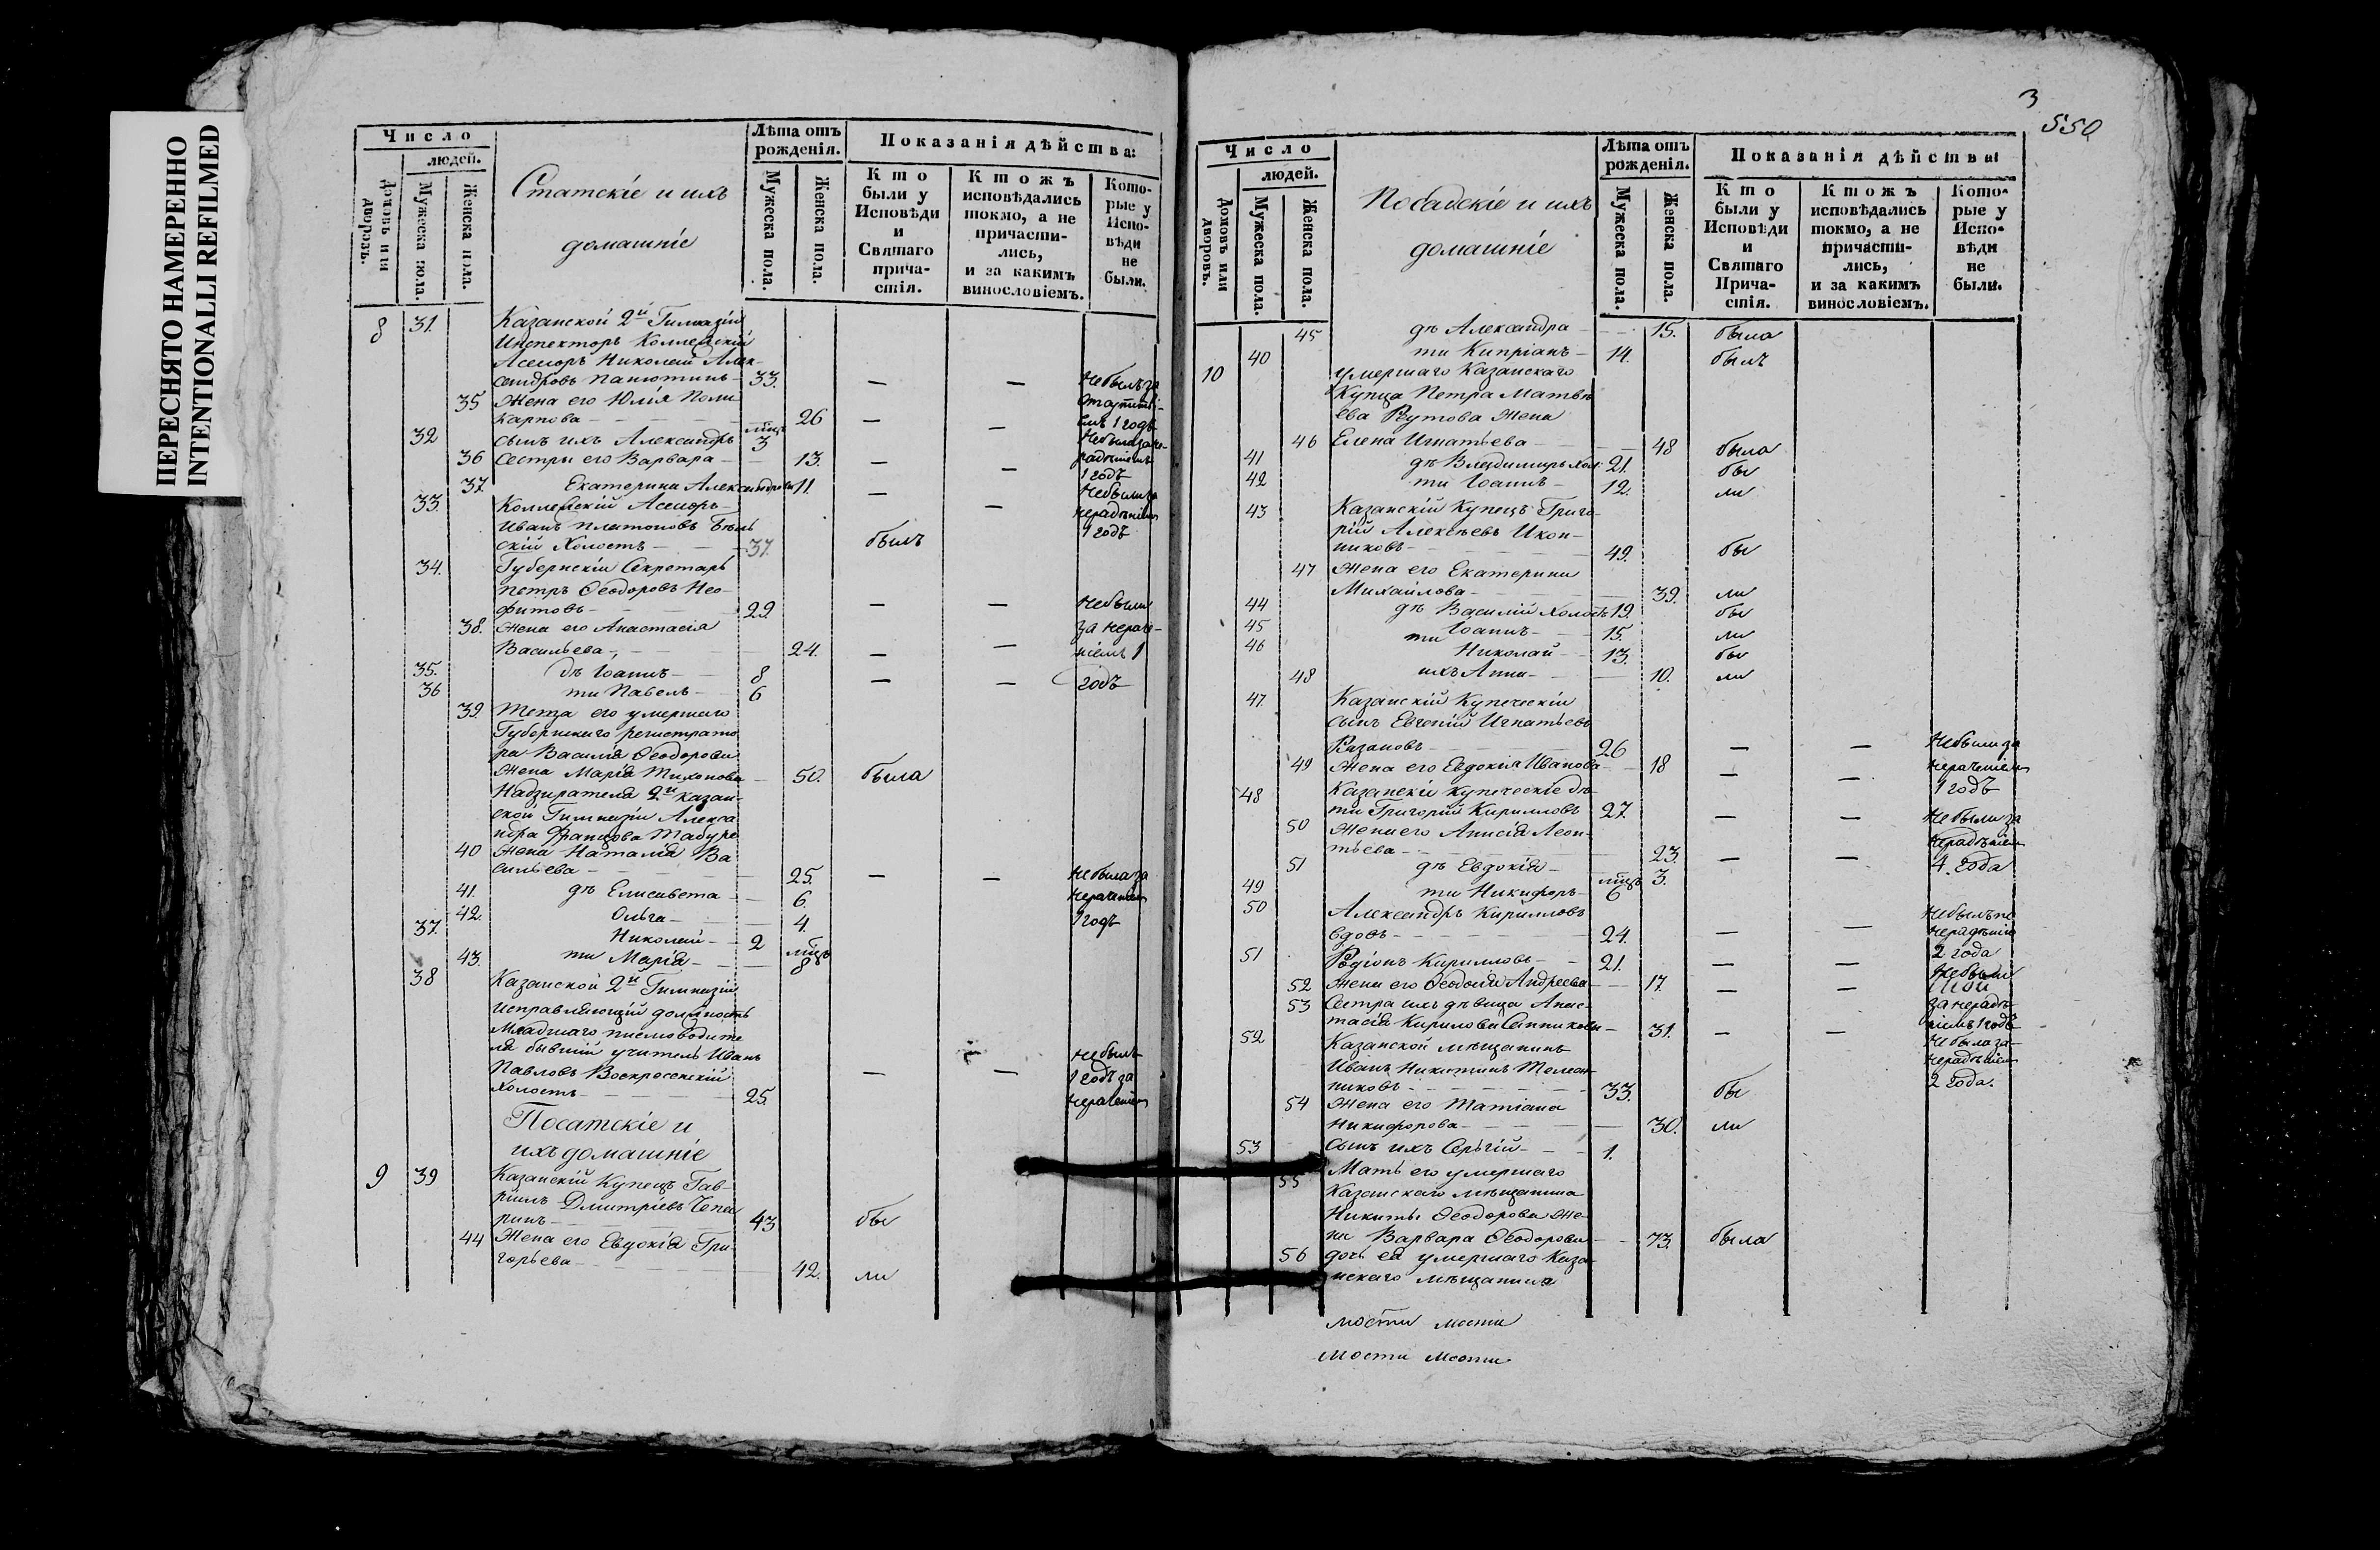 ПЕРЕСНЯТО НАМЕРЕННО
INTENTIONALLI REFILMED
Число
людей.
Домовъ или дворовъ.
Мужеска пола.
Женска пола.
Статскіе и ихъ
домашніе
Лѣта отъ рожденія.
Мужеска пола.
Женска пола.
Показанія дѣйства:
Кто были у Исповѣди и Святаго причастія.
Ктожъ исповѣдались токмо, а не причастились, и за какимъ винословіемъ.
Которые у Исповѣди не были.
8 31. Казанской 2й Гимназіи
Инспекторъ Коллежскій
Асесоръ Николай Алек-
сандровъ Панютинъ - 33. — — Небылъ за
35 Жена его Юлія Поли отлучкі-
карпова - 26 — — емъ 1 годъ
32 сынъ ихъ Александръ мцъ 3
36 Сестры его Варвара - 13. — — 
37. Екатерина Александровы 11. — — 1 годъ
33. Коллежскій Асесоръ -
Иванъ Платоновъ Бѣль
скій Холостъ - 37. былъ
34. Губернскій Секретарь
Петръ Ѳеодоровъ Нео-
фитовъ - 29. — — Небыли
38. Жена его Анастасія за нераче-
Васильева - 24. — — ніемъ 1
35. дѣ Іоаннъ - 8 — — годъ
36 ти Павелъ - 6
39. Теща его умершаго
Губернскаго регистрато
ра Василія Ѳеодорова
Жена Марія Тихонова - 50. была
Надзирателя 2й Казан-
ской Гимназіи Алекса
ндра Францова Табуре
40 Жена Наталія Ва
сильева - 25. — — Небыла за
41. дѣ Елисавета - 6. нераченіем
42. Ольга - 4. 1 годъ
37. Николай - 2
43. ти Марія - мцъ 8
38 Казанской 2й Гимназіи
исправляющій должность
Младшаго писмоводите
ля бывшій учитель Иванъ
Павловъ Воскресенскій — — небылъ
Холостъ - 25. 1 годъ за
нераченіем
Посатскіе и
ихъ домашніе
9 39 Казанскій Купецъ Гав-
ріилъ Дмитріевъ Чепа
ринъ - 43 бы
44 Жена его Евдокія Гри-
горьева - 42. ли
3
550
Число
людей.
Домовъ или дворовъ.
Мужеска пола.
Женска пола.
Посадскіе и ихъ
домашніе
Лѣта отъ рожденія.
Мужеска пола.
Женска пола.
Показанія дѣйства:
Кто были у Исповѣди и Святаго Причастія.
Ктожъ исповѣдались токмо, а не причастились, и за какимъ винословіемъ.
Которые у Исповѣди не были.
45 дѣ Александра - 15. была
40 ти Кипріанъ - 14. былъ
10 умершаго Казанскаго
Купца Петра Матвѣ
ева Реутова Жена
46 Елена Игнатьева - 48 была
41 дѣ Владимиръ хол: 21. бы
42 ти Іоаннъ - 12. ли
43 Казанскій Купецъ Григо-
рій Алексѣевъ Икон-
никовъ - 49. бы
47 Жена его Екатерина
Михайлова - 39. ли
44 дѣ Василій холостъ 19. бы
45 ти Іоаннъ - 15. ли
46 Николай - 13. бы
48 ихъ Анна - 10. ли
47. Казанскій Купеческій
сынъ Евгеній Игнатьевъ
Рязановъ - 26 — — Небыли за
49 Жена его Евдокія Иванова - 18 — — нераченіем
48 Казанскій купеческіе дѣ- 1 годъ
ти Григорій Кирилловъ 27. — — Небыли за
50 Жена его Анисія Леон- нерадѣніем
тьева - 23. — — 4 года
51 дѣ Евдокія - мцъ 3.
49 ти Никифоръ - 6
50 Александръ Кирилловъ Небылъ по
вдовъ - 24. — — нерадѣнію
51 Родіонъ Кирилловъ - 21. — — 2 года
52 Жена его Ѳеодосія Андреева - 17. — — Небыли
53 Сестра ихъ дѣвица Анас- за нерадѣ-
тасія Кирилова - 31. — — ніемъ 1 годъ
52 Казанской мѣщанинъ Небыла за
Иванъ Никитинъ нерадѣніем
никовъ - 33. бы 2 года.
54 Жена его Татіана
Никифорова - 30. ли
53 Сынъ ихъ Сергій - 1.
55 Мать его умершаго
Казанскаго мѣщанина
Никиты Ѳеодорова Же-
на Варвара Ѳеодорова - 73. была
56 дочь ея умершаго Каза-
нскаго мѣщанина
мости мости
мости мости